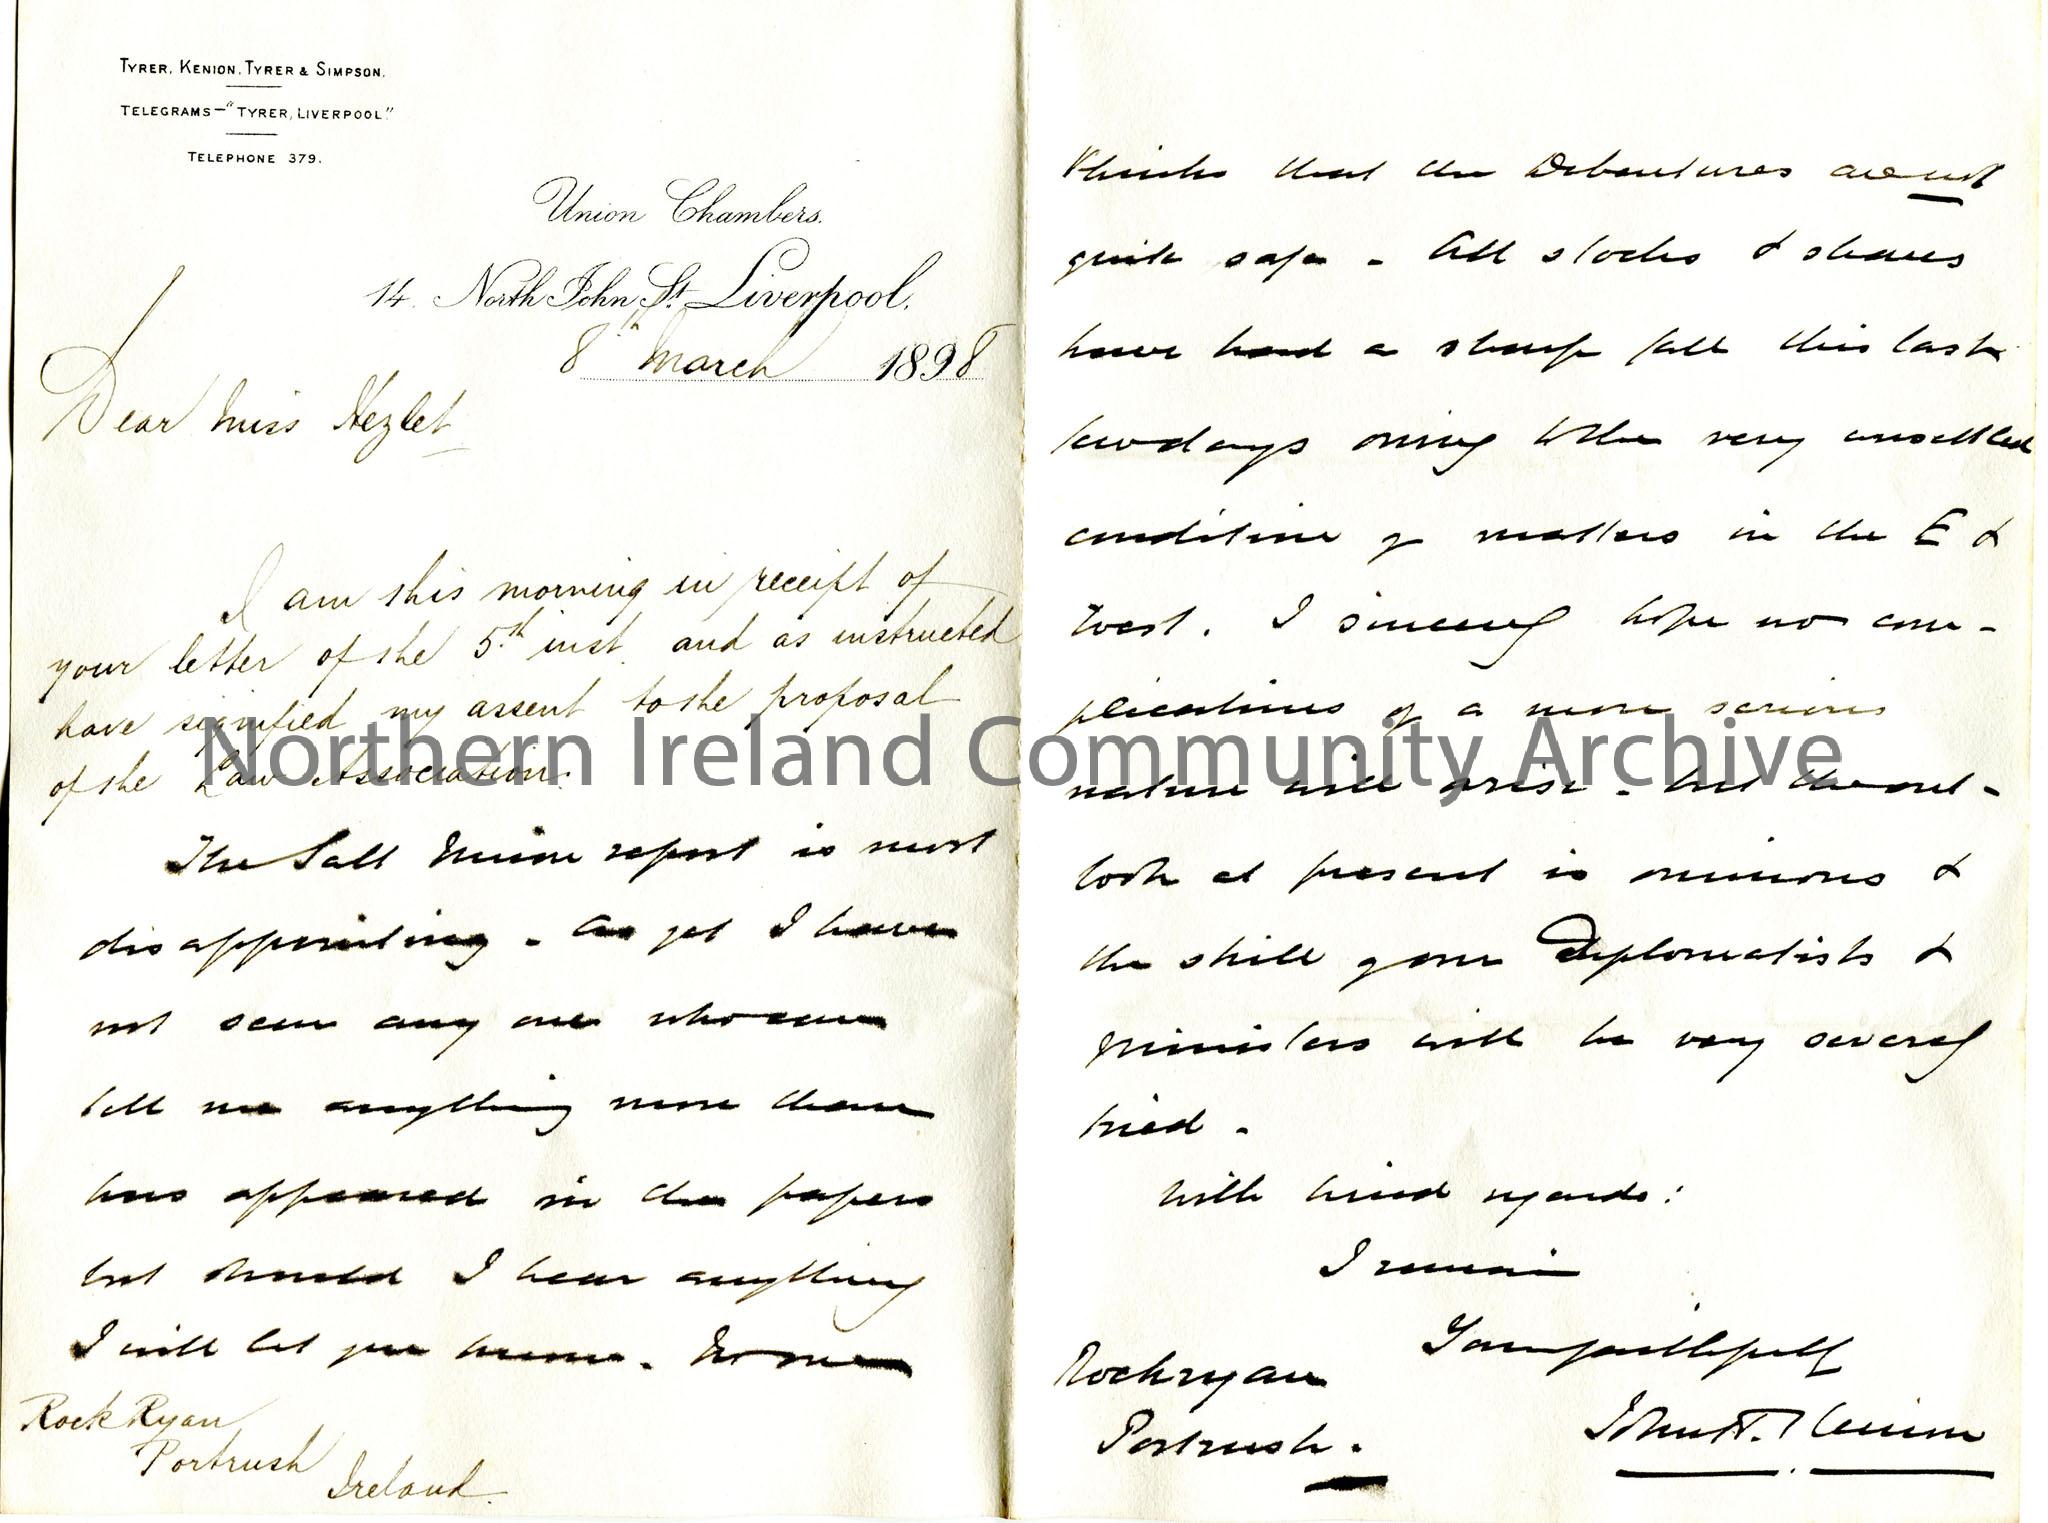 TYRER, KENION, TYRER & SIMPSON.
TELEGRAMS—"TYRER, LIVERPOOL."
TELEPHONE 379.
Union Chambers.
14. North John St. Liverpool.
8th March 1898
Dear Miss Hezlet
I am this morning in receipt of
your letter of the 5th inst. and as instructed
have signified my assent to the proposal
of the Law Association.
The Salt Union report is most
disappointing - As yet I have
not seen any one who can
tell me anything more than
has appeared in the papers
but should I hear anything
I will let you know. No one
Rock Ryan
Portrush
Ireland.
thinks that the Debentures are not
quite safe - All stocks & shares
have had a sharp fall this last
few days owing to the very unsettled
condition of matters in the E &
West. I sincerely hope no com-
plications of a more serious
nature will arise - but the out-
look at present is ominous &
the skill of our Diplomatists &
Ministers will be very severely
tried -
With kind regards:
I remain
Yours faithfully
John H. Kenion
Rockryan
Portrush.
Northern Ireland Community Archive